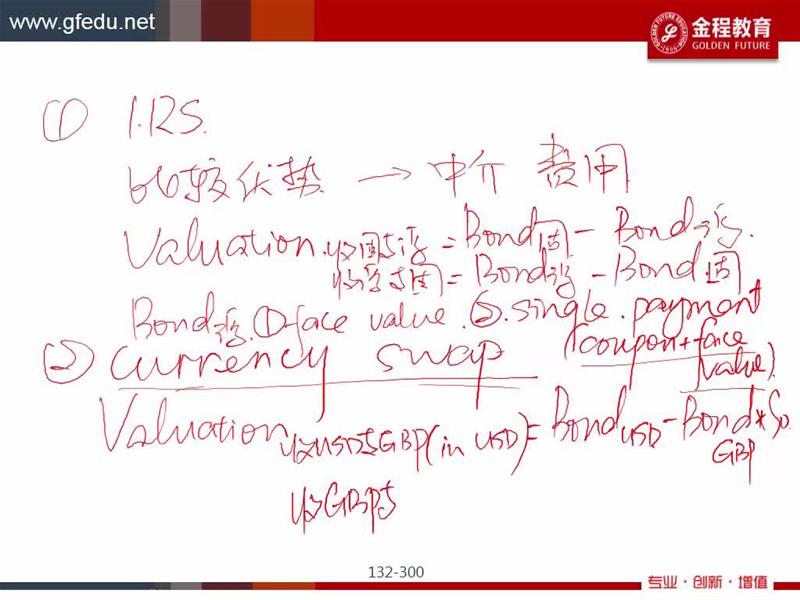 www.gfedu.net
金程教育
GOLDEN FUTURE
① I.R.S.
比较优势 → 中介 费用
Valuation 收固支浮 = Bond固 - Bond浮.
收浮支固 = Bond浮 - Bond固
Bond浮. ① face value. ②. single. payment
(coupon + face value)
② currency swap
Valuation 收USD支GBP (in USD) = Bond USD - Bond GBP * S0
收GBP支
132-300
专业·创新·增值